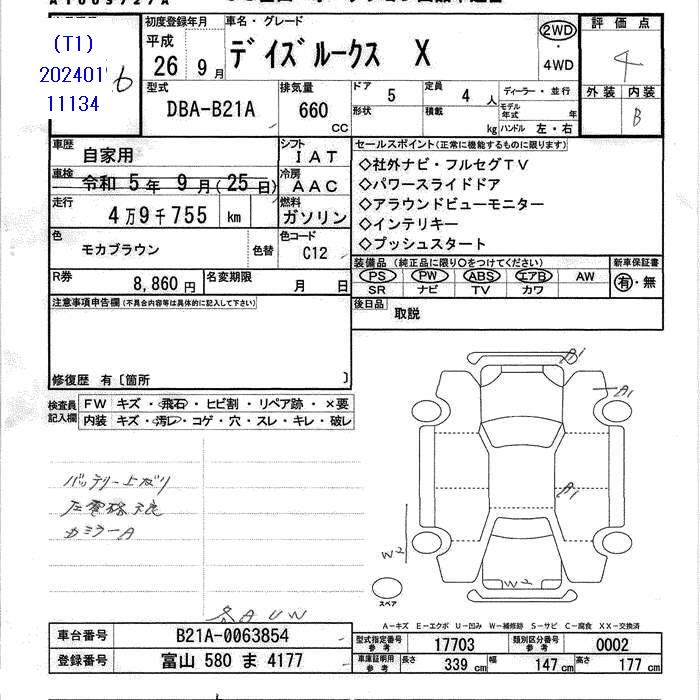 (T1)
20240116
11134
初度登録年月
平成
26 9月
車名・グレード
デイズルークス X
2WD
・
4WD
評価点
4
外装 内装
B
型式
DBA-B21A
排気量
660
CC
ドア
5
形状
定員
4 人
積載
kg
ディーラー・並行
モデル
年式 年
ハンドル 左・右
車歴
自家用
シフト
IAT
車検
令和 5年 9月(25日)
冷房
AAC
走行
4万9千755 km
燃料
ガソリン
色
モカブラウン
色替
色コード
C12
R券
8,860 円
名変期限
月 日
セールスポイント(正常に機能するものに限ります)
◇社外ナビ・フルセグTV
◇パワースライドドア
◇アラウンドビューモニター
◇インテリキー
◇プッシュスタート
装備品(純正品に限り○をつけてください)
PS PW ABS エアB AW
SR ナビ TV カワ
新車保証書
有・無
後日品
取説
注意事項申告欄(不具合内容等は具体的に記入して下さい)
修復歴 有〔箇所 〕
検査員
記入欄
FW キズ・飛石・ヒビ割・リペア跡・×要
内装 キズ・汚レ・コゲ・穴・スレ・キレ・破レ
バッテリー上がり
左電格不良
カミラーA
各AUW
A1
A1
A1
W2
W2
スペア
A－キズ E－エクボ U－凹み W－補修跡 S－サビ C－腐食 XX－交換済
車台番号
B21A-0063854
登録番号
富山 580 ま 4177
型式指定番号
参考
17703
類別区分番号
参考
0002
車庫証明用
参考
長さ
339 cm
幅
147 cm
高さ
177 cm